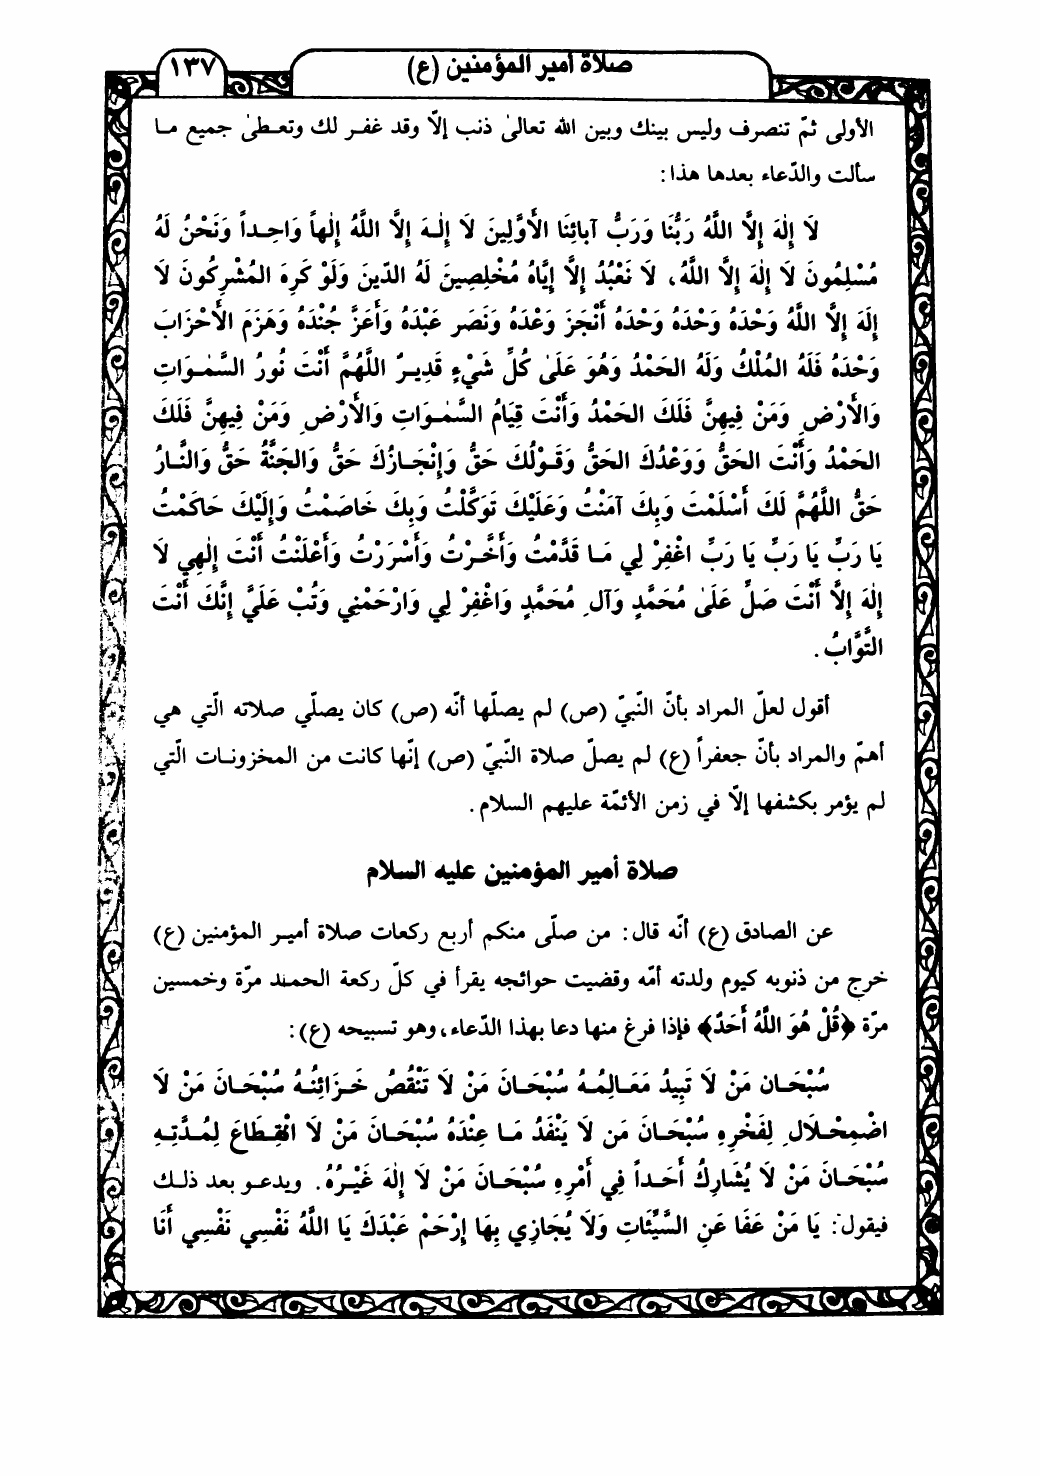 صلاة أمير المؤمنين (ع)
١٣٧
الأولى ثمّ تنصرف وليس بينك وبين الله تعالىٰ ذنب إلاّ وقد غفر لك وتعطىٰ جميع ما
سألت والدّعاء بعدها هذا:
لَا إِلٰهَ إِلاَّ اللَّهُ رَبُّنَا وَرَبُّ آبائِنَا الأَوَّلِينَ لَا إِلٰهَ إِلاَّ اللَّهُ إِلٰهاً وَاحِداً وَنَحْنُ لَهُ
مُسْلِمُونَ لَا إِلٰهَ إِلاَّ اللَّهُ، لَا نَعْبُدُ إِلاَّ إِيَّاهُ مُخْلِصِينَ لَهُ الدّينَ وَلَوْ كَرِهَ المُشْرِكُونَ لَا
إِلَهَ إِلاَّ اللَّهُ وَحْدَهُ وَحْدَهُ وَحْدَهُ أَنْجَزَ وَعْدَهُ وَنَصَر عَبْدَهُ وَأَعَزَّ جُنْدَهُ وَهَزَمَ الأَحْزَابَ
وَحْدَهُ فَلَهُ المُلْكُ وَلَهُ الحَمْدُ وَهُوَ عَلَىٰ كُلِّ شَيْءٍ قَدِيرٌ اللَّهُمَّ أَنْتَ نُورُ السَّمٰوَاتِ
وَالأَرْضِ وَمَنْ فِيهِنَّ فَلَكَ الحَمْدُ وَأَنْتَ قِيَامُ السَّمٰوَاتِ وَالأَرْضِ وَمَنْ فِيهِنَّ فَلَكَ
الحَمْدُ وَأَنْتَ الحَقُّ وَوَعْدُكَ الحَقُّ وَقَوْلُكَ حَقُّ وَإِنْجَازُكَ حَقُّ وَالجَنَّةُ حَقُّ وَالنَّارُ
حَقُّ اللَّهُمَّ لَكَ أَسْلَمْتُ وَبِكَ آمَنْتُ وَعَلَيْكَ تَوَكَّلْتُ وَبِكَ خَاصَمْتُ وَإِلَيْكَ حَاكَمْتُ
يَا رَبِّ يَا رَبِّ يَا رَبِّ اغْفِرْ لِي مَا قَدَّمْتُ وَأَخَّرْتُ وَأَسْرَرْتُ وَأَعْلَنْتُ أَنْتَ إِلٰهِي لَا
إِلٰهَ إِلاَّ أَنْتَ صَلِّ عَلَىٰ مُحَمَّدٍ وَآلِ مُحَمَّدٍ وَاغْفِرْ لِي وَارْحَمْنِي وَتُبْ عَلَيَّ إِنَّكَ أَنْتَ
التَّوَّابُ.
أقول لعلّ المراد بأنّ النّبيّ (ص) لم يصلّها أنّه (ص) كان يصلّي صلاته الّتي هي
أهمّ والمراد بأنّ جعفراً (ع) لم يصلّ صلاة النّبيّ (ص) إنّها كانت من المخزونات الّتي
لم يؤمر بكشفها إلاّ في زمن الأئمّة عليهم السلام.
صلاة أمير المؤمنين عليه السلام
عن الصادق (ع) أنّه قال: من صلّى منكم أربع ركعات صلاة أمير المؤمنين (ع)
خرج من ذنوبه كيوم ولدته أمّه وقضيت حوائجه يقرأ في كلّ ركعة الحمد مرّة وخمسين
مرّة ﴿قُلْ هُوَ اللَّهُ أَحَدٌ﴾ فإذا فرغ منها دعا بهذا الدّعاء، وهو تسبيحه (ع):
سُبْحَان مَنْ لَا تَبِيدُ مَعَالِمُهُ سُبْحَانَ مَنْ لَا تَنْقُصُ خَزَائِنُهُ سُبْحَانَ مَنْ لَا
اضْمِحْلَالِ لِفَخْرِهِ سُبْحَانَ مَن لَا يَنْفَدُ مَا عِنْدَهُ سُبْحَانَ مَنْ لَا انْقِطَاعَ لِمُدَّتِهِ
سُبْحَانَ مَنْ لَا يُشَارِكُ أَحَداً فِي أَمْرِهِ سُبْحَانَ مَنْ لَا إِلٰهَ غَيْرُهُ. ويدعو بعد ذلك
فيقول: يَا مَنْ عَفَا عَنِ السَّيِّئَاتِ وَلَا يُجَازِي بِهَا إِرْحَمْ عَبْدَكَ يَا اللَّهُ نَفْسِي نَفْسِي أَنَا